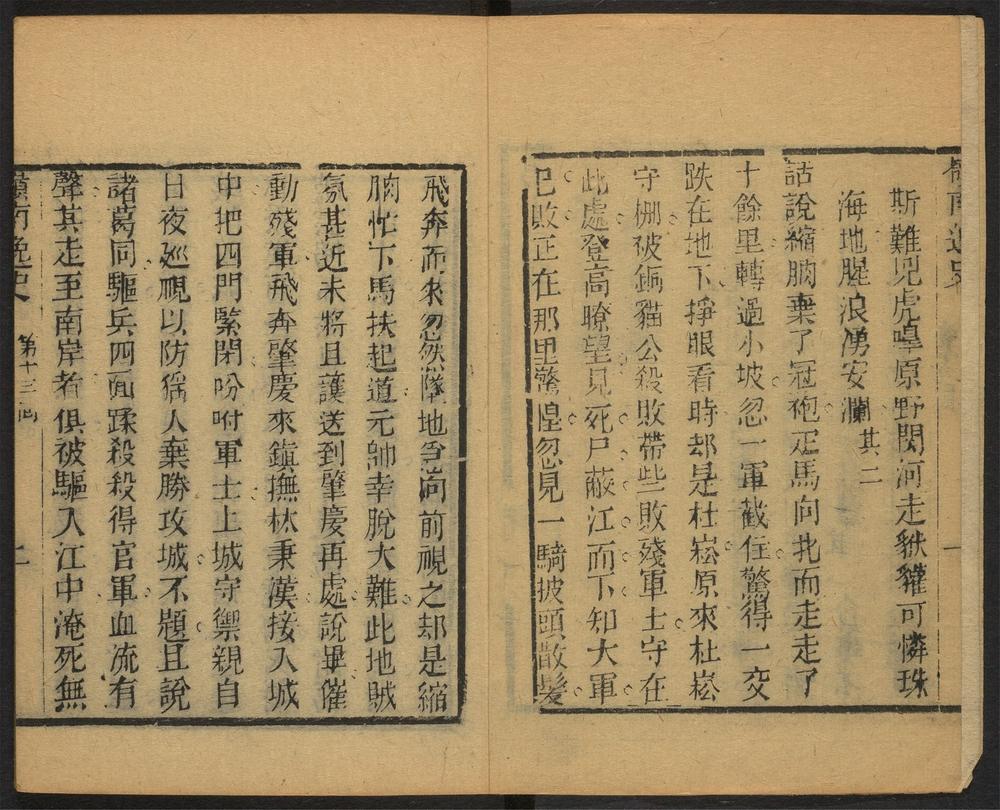 嶺南逸史
一
斯難兕虎嘷原野閧河走貅貛可憐珠
海地腥浪湧安瀾
其二
話說縮朒棄了冠袍疋馬向北而走走了
十餘里轉過小坡忽一軍截住驚得一交
跌在地下掙眼看時却是杜崧原來杜崧
守栅破鉐貓公殺敗帶些敗殘軍士守在
此處登高瞭望見死尸蔽江而下知大軍
已敗正在那里驚惶忽見一騎披頭散髮
飛奔而來忽然墜地急向前視之却是縮
朒忙下馬扶起道元帥幸脫大難此地賊
氛甚近未將且護送到肇慶再處說畢催
動殘軍飛奔肇慶來鎭撫林秉漢接入城
中把四門緊閉吩咐軍士上城守禦親自
日夜廵視以防猺人棄勝攻城不題且說
諸葛同驅兵四面蹂殺殺得官軍血流有
聲其走至南岸者俱被驅入江中淹死無
嶺南逸史
第十三回